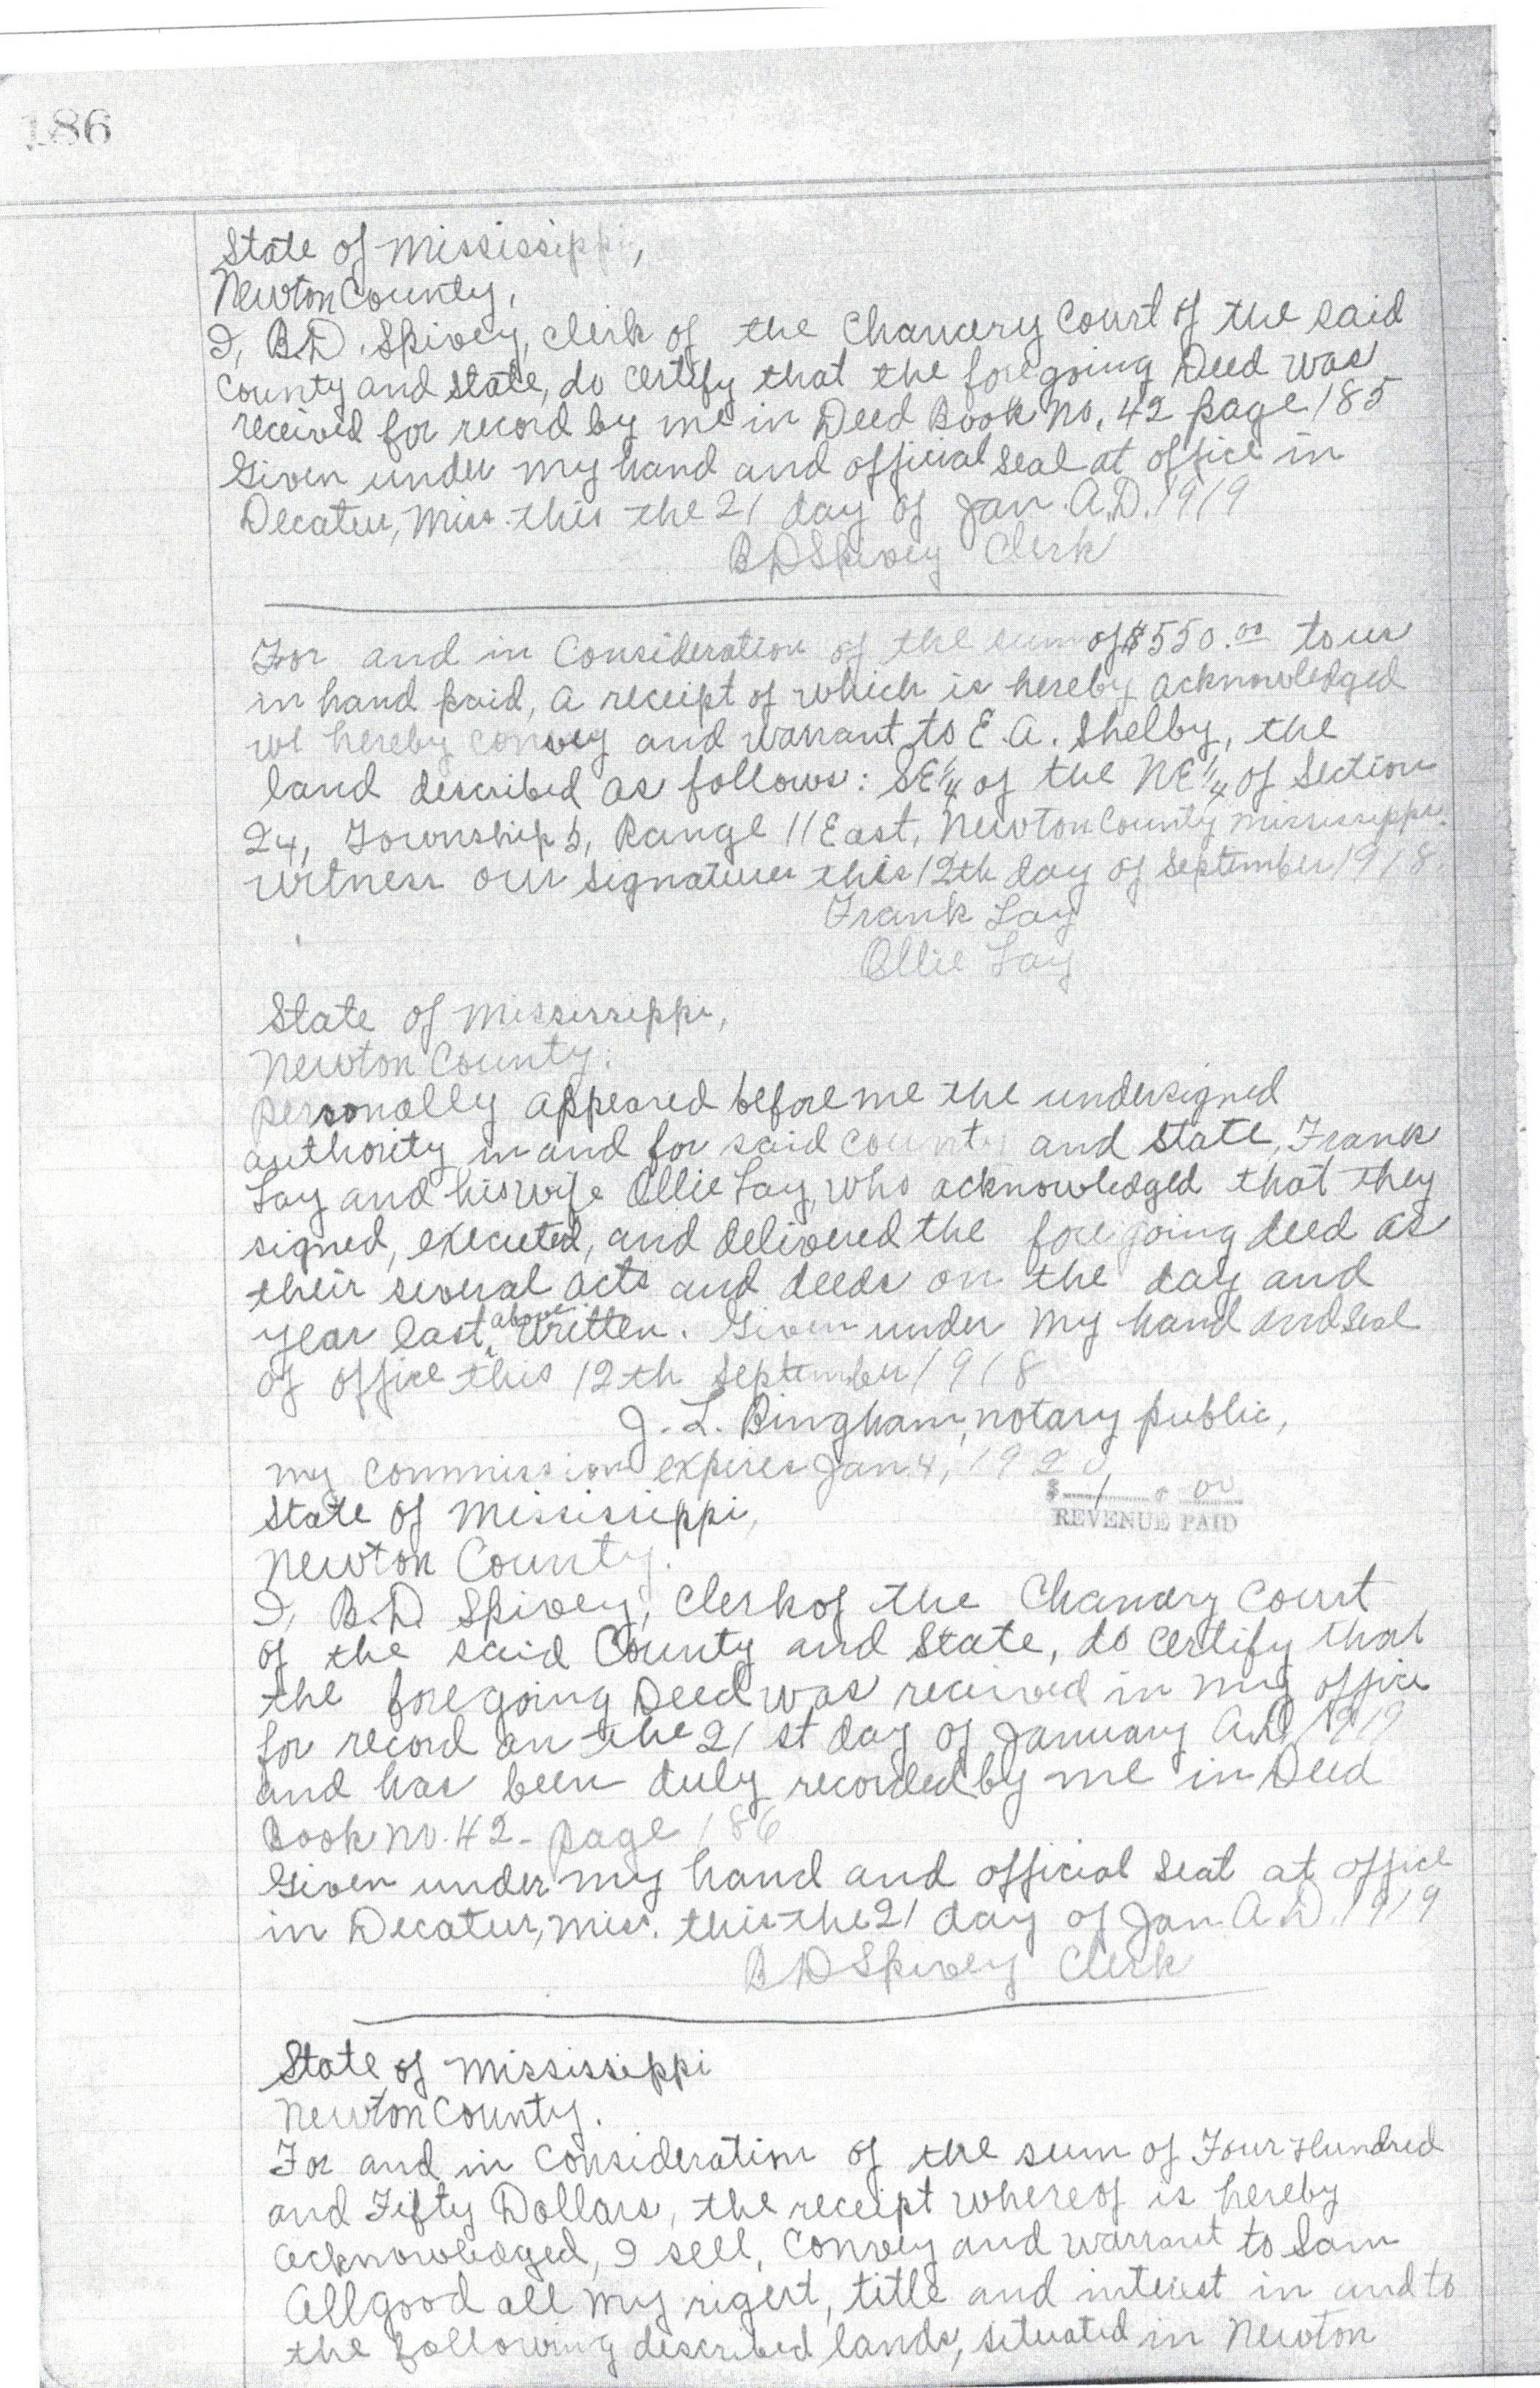 186
State of Mississippi,
Newton County,
I, B.D. Spivey, Clerk of the Chancery Court of the said
County and State, do certify that the foregoing Deed was
received for record by me in Deed Book No. 42 page 185
Given under my hand and official seal at office in
Decatur, Miss. this the 21 day of Jan. A.D. 1919
BD Spivey Clerk
For and in Consideration of the sum of $550.00 to us
in hand paid, a receipt of which is hereby acknowledged
we hereby convey and warrant to E. A. Shelby, the
land described as follows: SE 1/4 of the NE 1/4 of Section
24, Township 5, Range 11 East, Newton County Mississippi.
Witness our signatures this 12th day of September 1918.
Frank Lay
Ollie Lay
State of Mississippi,
Newton County.
personally appeared before me the undersigned
authority in and for said county and state, Frank
Lay and his wife Ollie Lay, who acknowledged that they
signed, executed, and delivered the foregoing deed as
their several acts and deeds on the day and
year last above written. Given under my hand and seal
of office this 12th September 1918
J. L. Bingham, notary public,
my commission expires Jan 4, 1920
$ 1 00
REVENUE PAID
State of Mississippi,
Newton County.
I, B.D. Spivey, Clerk of the Chancery Court
of the said County and State, do certify that
the foregoing Deed was received in my office
for record on the 21 st day of January A.D. 1919
and has been duly recorded by me in Deed
Book No. 42 - page 186
Given under my hand and official seal at office
in Decatur, Miss. this the 21 day of Jan A.D. 1919
BD Spivey Clerk
State of Mississippi
Newton County.
For and in Consideration of the sum of Four Hundred
and Fifty Dollars, the receipt whereof is hereby
acknowledged, I sell, convey and warrant to Sam
Allgood all my rigert, title and interest in and to
the following described lands, situated in Newton